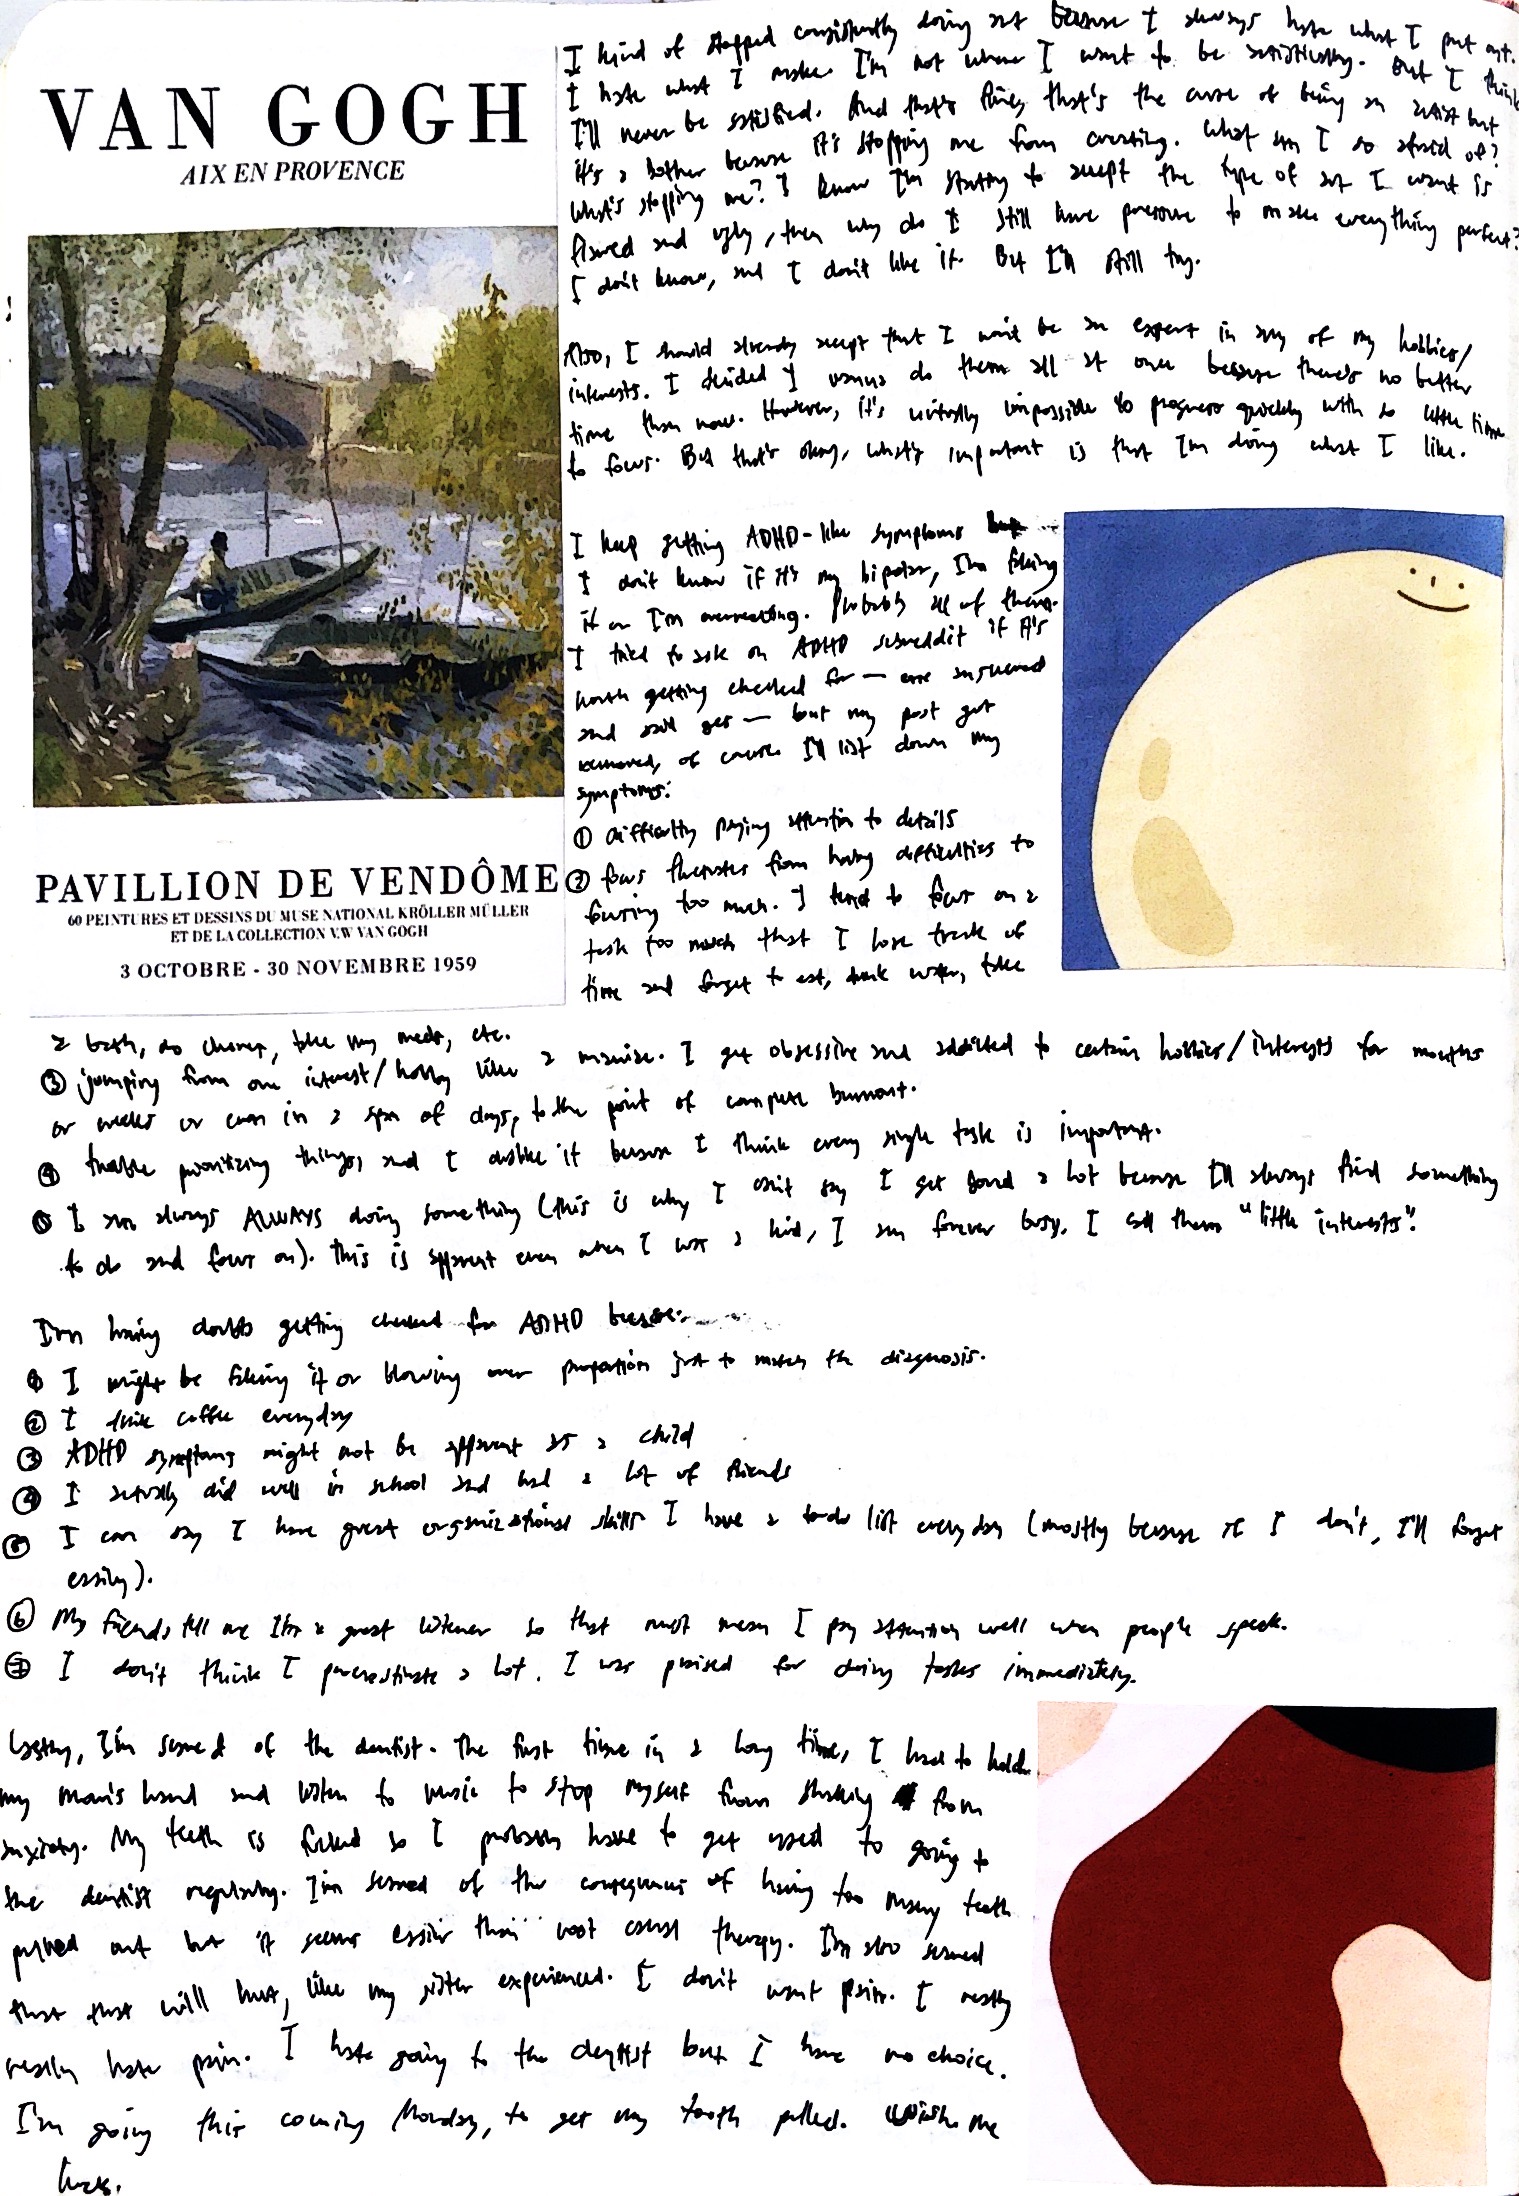 VAN GOGH
AIX EN PROVENCE
PAVILLION DE VENDÔME
60 PEINTURES ET DESSINS DU MUSE NATIONAL KRÖLLER MÜLLER
ET DE LA COLLECTION V.W VAN GOGH
3 OCTOBRE - 30 NOVEMBRE 1959
I kind of stopped consistently doing art because I always hate what I put out.
I hate what I make. I'm not where I want to be artistically. But I think
I'll never be satisfied. And that's fine, that's the curse of being an artist but
it's a bother because it's stopping me from creating. What am I so afraid of?
What's stopping me? I know I'm starting to accept the type of art I want is
flawed and ugly, then why do I still have pressure to make everything perfect?
I don't know, and I don't like it. But I'll still try.
Also, I should already accept that I won't be an expert in any of my hobbies/
interests. I decided I wanna do them all at once because there's no better
time than now. However, it's virtually impossible to progress quickly with so little time
to focus. But that's okay, what's important is that I'm doing what I like.
I keep getting ADHD-like symptoms
I don't know if it's my bipolar, I'm faking
it or I'm overreacting. Probably all of them.
I tried to ask on ADHD subreddit if it's
worth getting checked for — one answered
and said yes — but my post got
removed, of course. I'll list down my
symptoms:
① difficulty paying attention to details
② focus fluctuates from having difficulties to
focusing too much. I tend to focus on a
task too much that I lose track of
time and forget to eat, drink water, take
a bath, do chores, take my meds, etc.
③ jumping from one interest/hobby like a maniac. I get obsessive and addicted to certain hobbies/interests for months
or weeks or even in a span of days, to the point of complete burnout.
④ trouble prioritizing things, and I dislike it because I think every single task is important.
⑤ I am always ALWAYS doing something (this is why I can't say I get bored a lot because I'll always find something
to do and focus on). This is apparent even when I was a kid, I am forever busy. I call them "little interests".
I'm having doubts getting checked for ADHD because:
① I might be faking it or blowing over proportion just to match the diagnosis.
② I drink coffee everyday
③ ADHD symptoms might not be apparent as a child
④ I actually did well in school and had a lot of friends
⑤ I can say I have great organizational skills I have a to-do list everyday (mostly because if I don't, I'll forget
easily).
⑥ My friends tell me I'm a great listener so that must mean I pay attention well when people speak.
⑦ I don't think I procrastinate a lot. I was praised for doing tasks immediately.
Lastly, I'm scared of the dentist. The first time in a long time, I had to hold
my mom's hand and listen to music to stop myself from shaking from
anxiety. My teeth is fucked so I probably have to get used to going to
the dentist regularly. I'm scared of the consequences of having too many teeth
pulled out but it seems easier than root canal therapy. I'm also scared
that that will hurt, like my sister experienced. I don't want pain. I really
really hate pain. I hate going to the dentist but I have no choice.
I'm going this coming Monday, to get my tooth pulled. Wish me
luck.